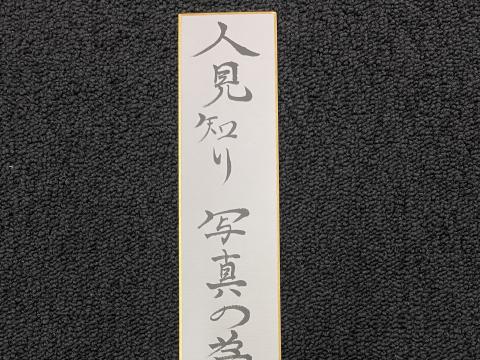 人見知り 写真の